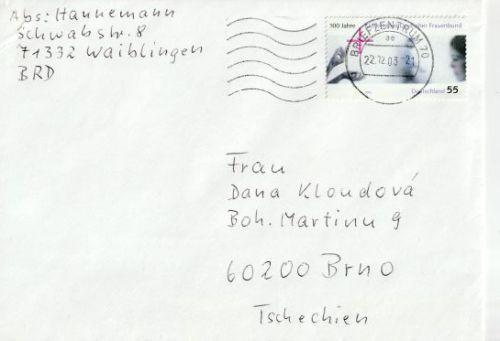 Abs: Hannemann
Schwabstr. 8
71332 Waiblingen
BRD
100 Jahre Frauenbund
BRIEFZENTRUM 70
22.12.03-21
Deutschland 55
Frau
Dana Kloudová
Boh. Martinu 9
60200 Brno
Tschechien